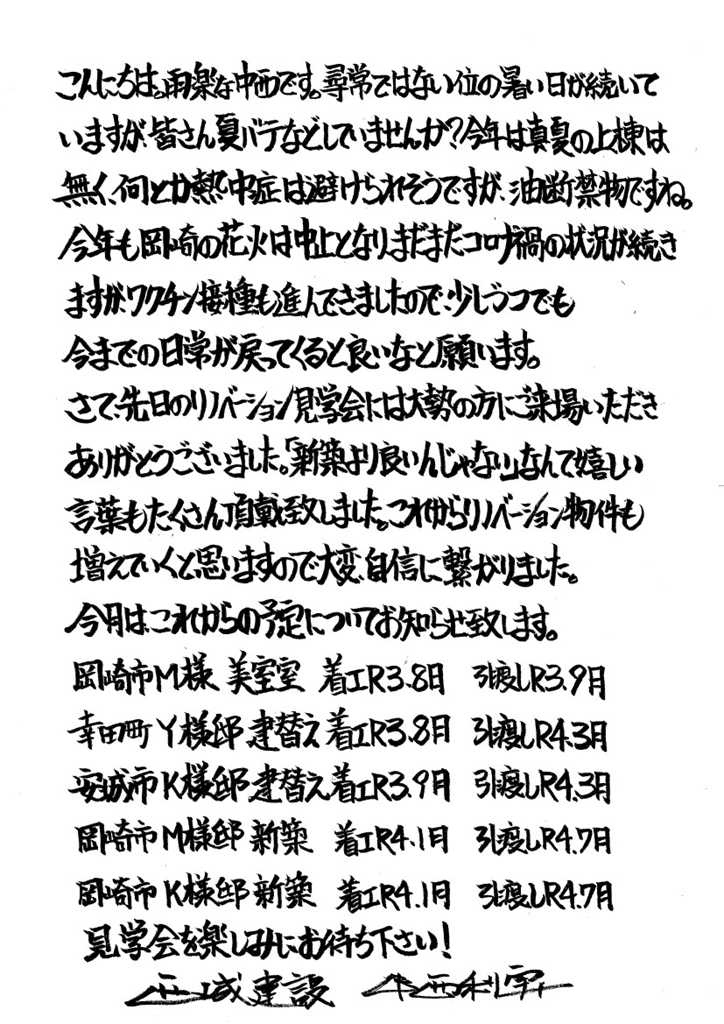 こんにちは。雨楽な中西です。尋常ではない位の暑い日が続いて
いますが、皆さん夏バテなどしていませんか?今年は真夏の上棟は
無く、何とか熱中症は避けられそうですが、油断禁物ですね。
今年も岡崎の花火は中止となり、まだまだコロナ禍の状況が続き
ますが、ワクチン接種も進んできましたので、少しづつでも
今までの日常が戻ってくると良いなと願います。
さて、先日のリノベーション見学会には大勢の方にご来場いただき
ありがとうございました。「新築より良いんじゃない」なんて嬉しい
言葉もたくさん頂戴致しました。これからリノベーション物件も
増えていくと思いますので大変、自信に繋がりました。
今月は、これからの予定についてお知らせ致します。
岡崎市M様 美容室 着工R3.8月 引渡しR3.9月
幸田町Y様邸 建替え 着工R3.8月 引渡しR4.3月
安城市K様邸 建替え 着工R3.9月 引渡しR4.3月
岡崎市M様邸 新築 着工R4.1月 引渡しR4.7月
岡崎市K様邸 新築 着工R4.1月 引渡しR4.7月
見学会を楽しみにお待ち下さい!
建設 中西